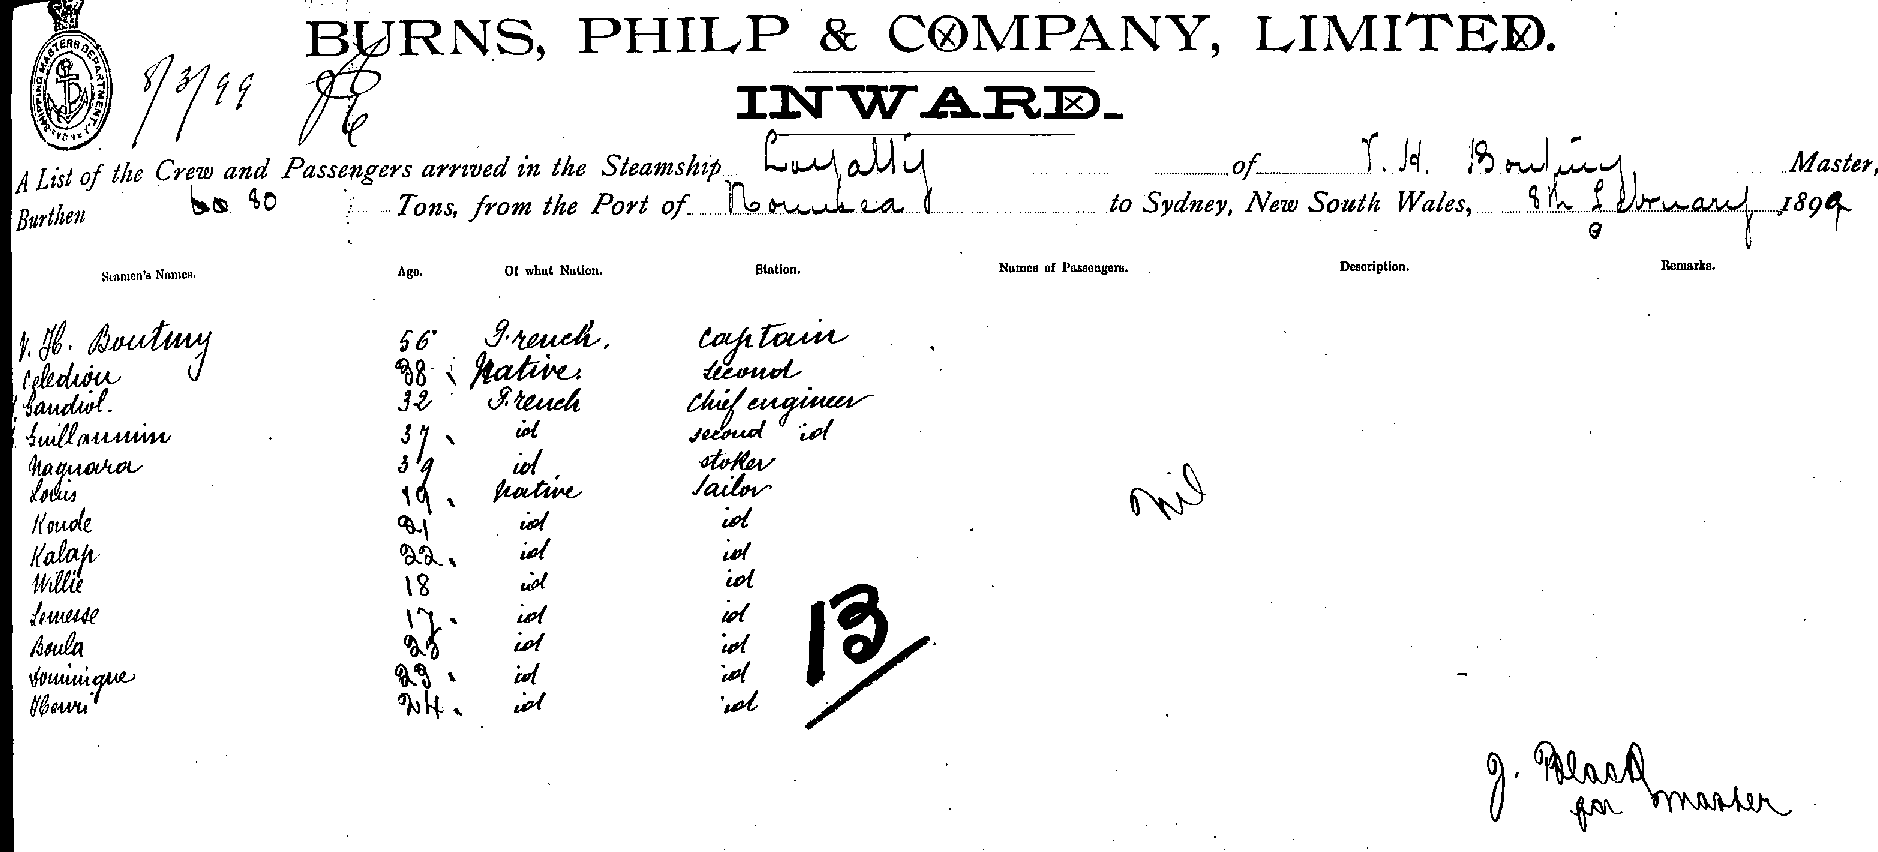 BURNS, PHILP & COMPANY, LIMITED.
SHIPPING MASTERS DEPARTMENT
8/3/99
INWARD.
A List of the Crew and Passengers arrived in the Steamship Loyalty of V. H. Boutmy Master,
Burthen 80 Tons, from the Port of Noumea to Sydney, New South Wales, 8th February 1899
Seamen's Names. Age. Of what Nation. Station. Names of Passengers. Description. Remarks.
V. H. Boutmy 56 French. captain
Celedion 38 Native. second
Gandiol. 32 French chief engineer
Guillaumin 37 id second id
Naguara 39 id stoker
Louis 19 native sailor
Koude 21 id id
Kalap 22 id id
Willie 18 id id
Lemesse 17 id id
Boula 25 id id
Dominique 23 id id
Henri 24 id id
nil
13
J. Black
for master